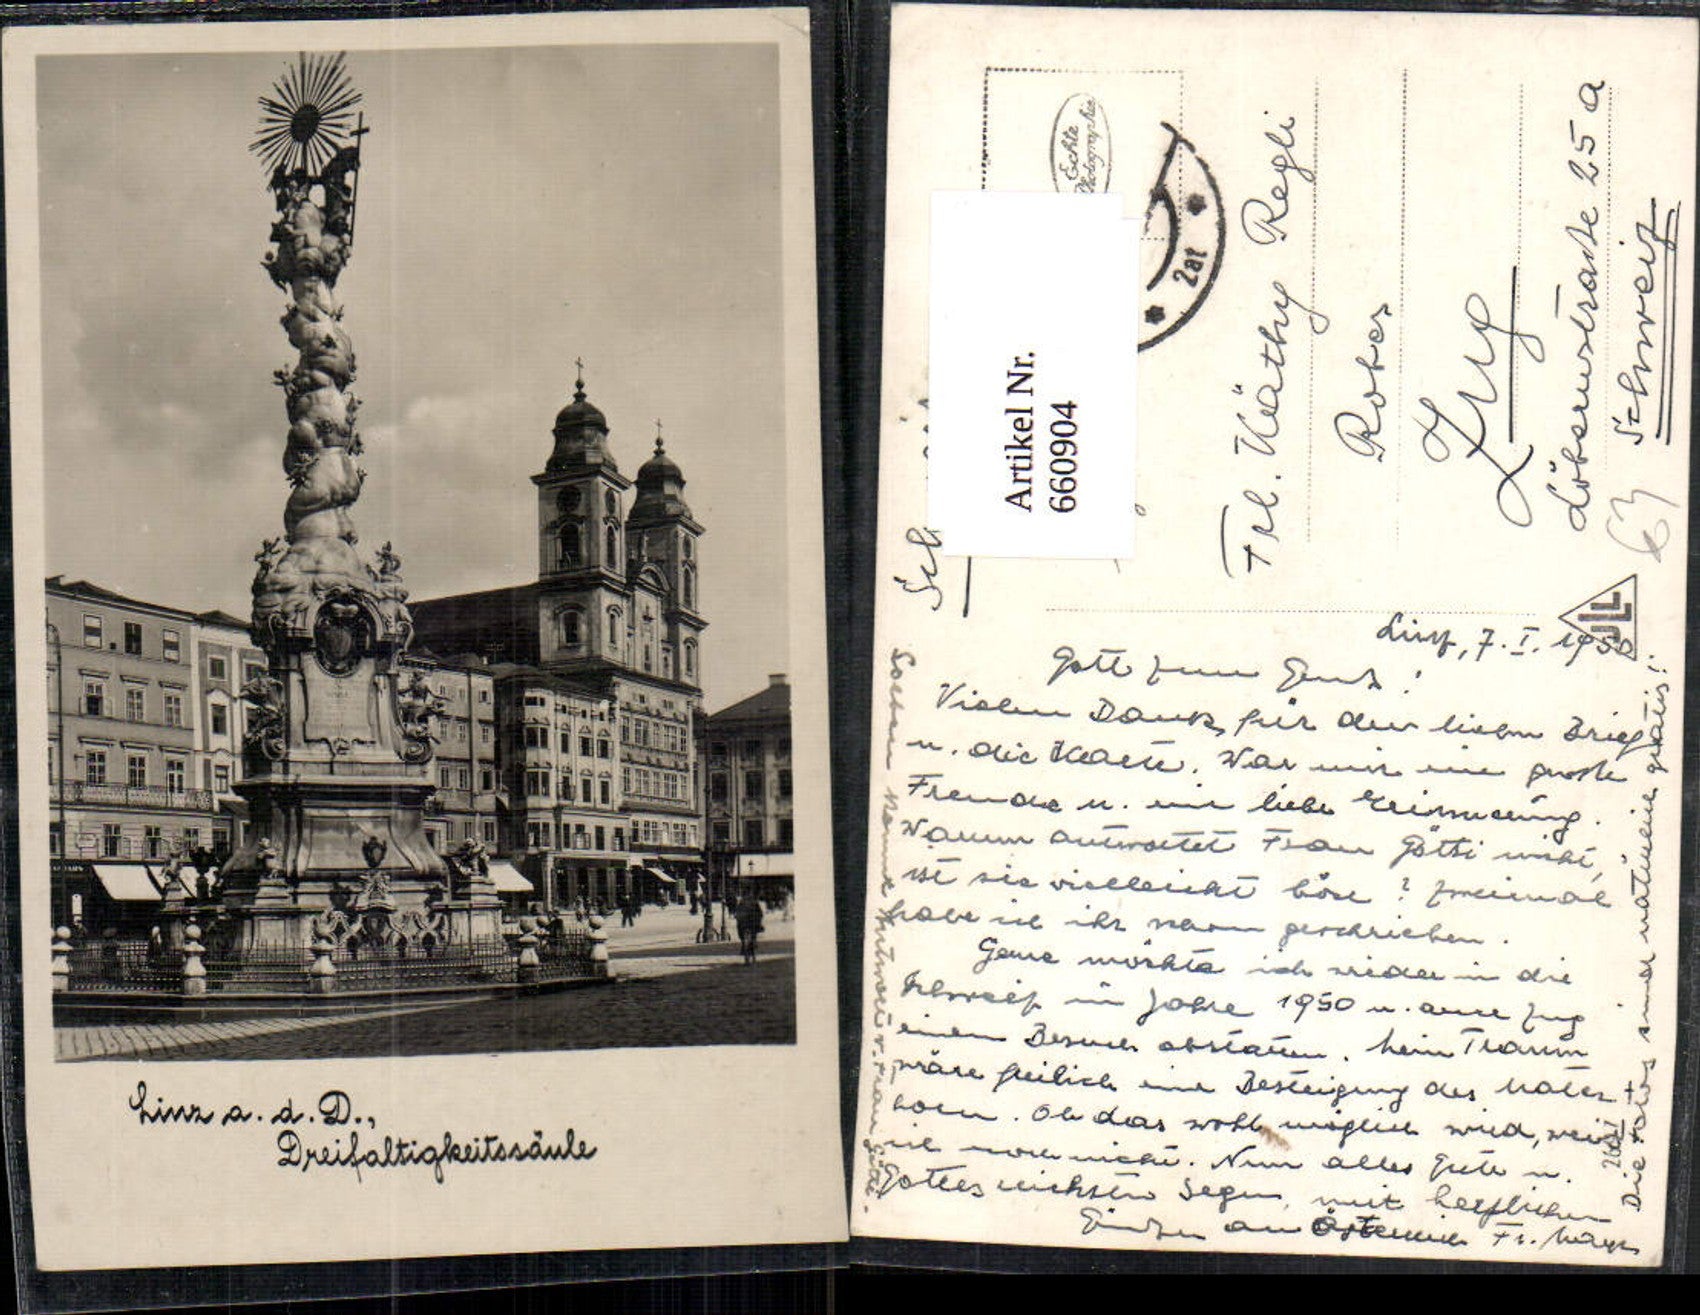 Linz a. d. D.,
Dreifaltigkeitssäule
Echte
Photographie
2at
Artikel Nr.
660904
Frl. Käthy Regli
Zug
Löbernstraße 25 a
Schweiz
63
Linz, 7. I. 1950
Gott zum Gruß!
Vielen Dank für den lieben Brief
u. die Karte. War mir eine große
Freude u. eine liebe Erinnerung.
Warum antwortet Frau Götti nicht,
ist sie vielleicht böse? Zweimal
habe ich ihr schon geschrieben.
Gerne möchte ich wieder in die
Schweiz im Jahre 1950 u. auch Zug
einen Besuch abstatten. Mein Traum
wäre freilich eine Besteigung des Mater-
horn. Ob das wohl möglich wird, weiß
ich noch nicht. Nun alles Gute u.
Gottes reichsten Segen mit herzlichen
Grüßen aus Österreich Fr.
Soeben kommt Antwort v. Frau Götti.
Die Fotos sind natürlich gratis!